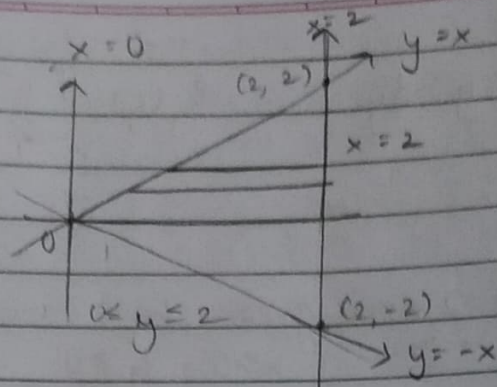 x = 2
x = 0
y = x
(2, 2)
x = 2
0
0 ≤ y ≤ 2
(2, -2)
y = -x